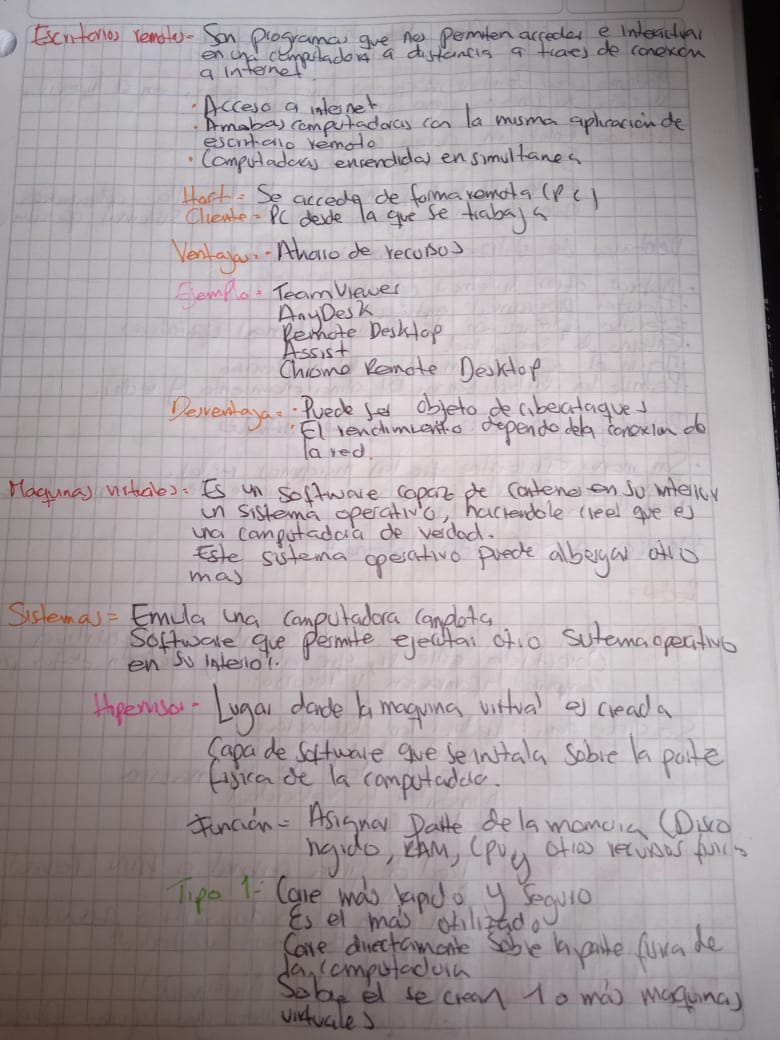 Escritorios remotos- Son programas que nos permiten acceder e interactuar
en una computadora a distancia a traves de conexión
a internet
· Acceso a internet
· Amabas computadoras con la misma aplicación de
escritorio remoto
· Computadoras encendidas en simultanea
Host = Se acceda de forma remota (PC)
Cliente = PC desde la que se trabaja
Ventajas - Ahorro de recursos
Ejemplo = TeamViewer
AnyDesk
Remote Desktop
Assist
Chrome Remote Desktop
Desventaja = · Puede ser objeto de ciberataques
· El rendimiento depende de la conexion de
la red.
Maquinas virtuales = Es un software capaz de contener en su interior
un sistema operativo, haciendole creer que es
una computadora de verdad.
Este sistema operativo puede albergar otro
mas
Sistemas = Emula una computadora completa
Software que permite ejecutar otro sistema operativo
en su interior.
Hipervisor - Lugar donde la maquina virtual es creada
Capa de software que se instala sobre la parte
fisica de la computadora.
Función = Asignar parte de la memoria (Disco
rigido, RAM, CPU y otros recursos fisicos
Tipo 1 - Corre más rapido y seguro
Es el más utilizado
Corre directamente sobre la parte fisica de
la computadora
Sobre el se crean 1 o más maquinas
virtuales